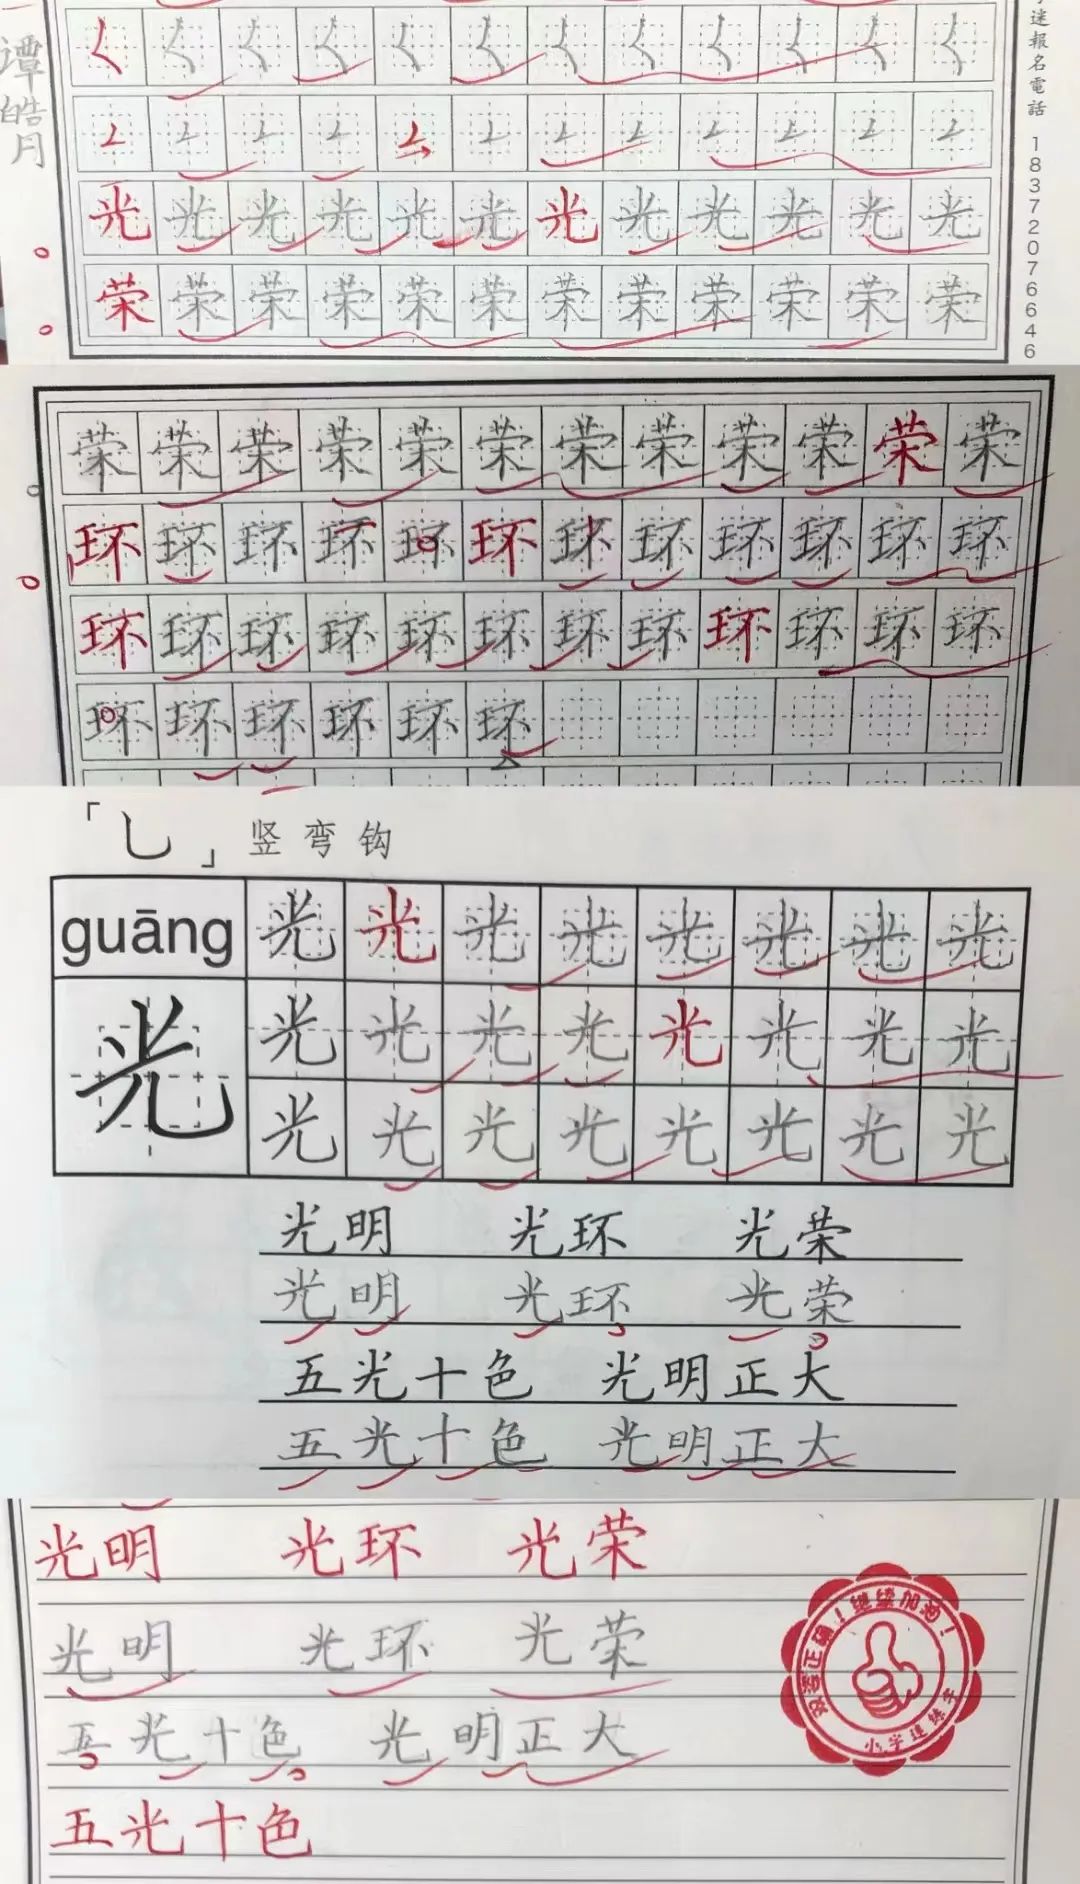 谭皓月
字迷報名電話 18372076646
光光光光光光光光光光光光
荣荣荣荣荣荣荣荣荣荣荣荣
荣荣荣荣荣荣荣荣荣荣荣荣
环环环环环环环环环环环环
环环环环环环环环环环环环
环环环环环环
「乚」竖弯钩
guāng 光光光光光光光光
光 光光光光光光光光
光光光光光光光光
光明 光环 光荣
光明 光环 光荣
五光十色 光明正大
五光十色 光明正大
光明 光环 光荣
光明 光环 光荣
五光十色 光明正大
五光十色
双姿正确！继续加油！
小字迷练字